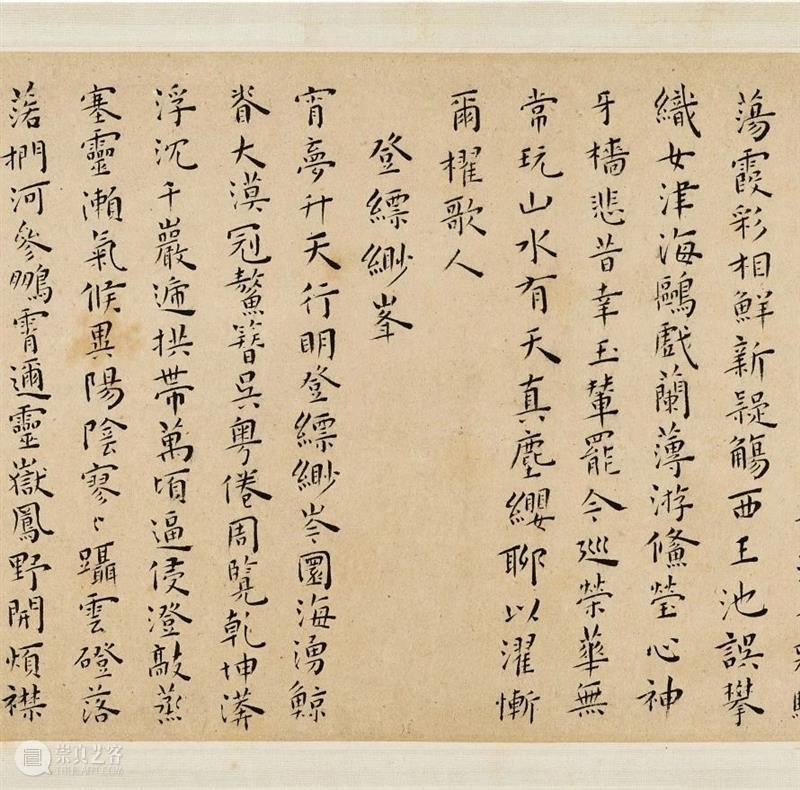 蕩霞彩相鮮新疑觴西王池誤攀
織女津海鷗戲蘭薄游鯈瑩心神
牙檣悲昔幸玉輦罷今巡榮華無
常玩山水有天真塵纓聊以濯慚
爾櫂歌人
登縹緲峯
宵夢升天行明登縹緲岑圜海湧鯨
脊大漠冠鰲簪吳粵倦周覽乾坤漭
浮沉千巖遞拱帶萬頃逼侵澄敲蒸
塞靈瀨氣候異陽陰寥〻躡雲磴落
落捫河參鵬霄邇靈嶽鳳野開煩襟
崇真艺客
WWW.TRUEART.COM